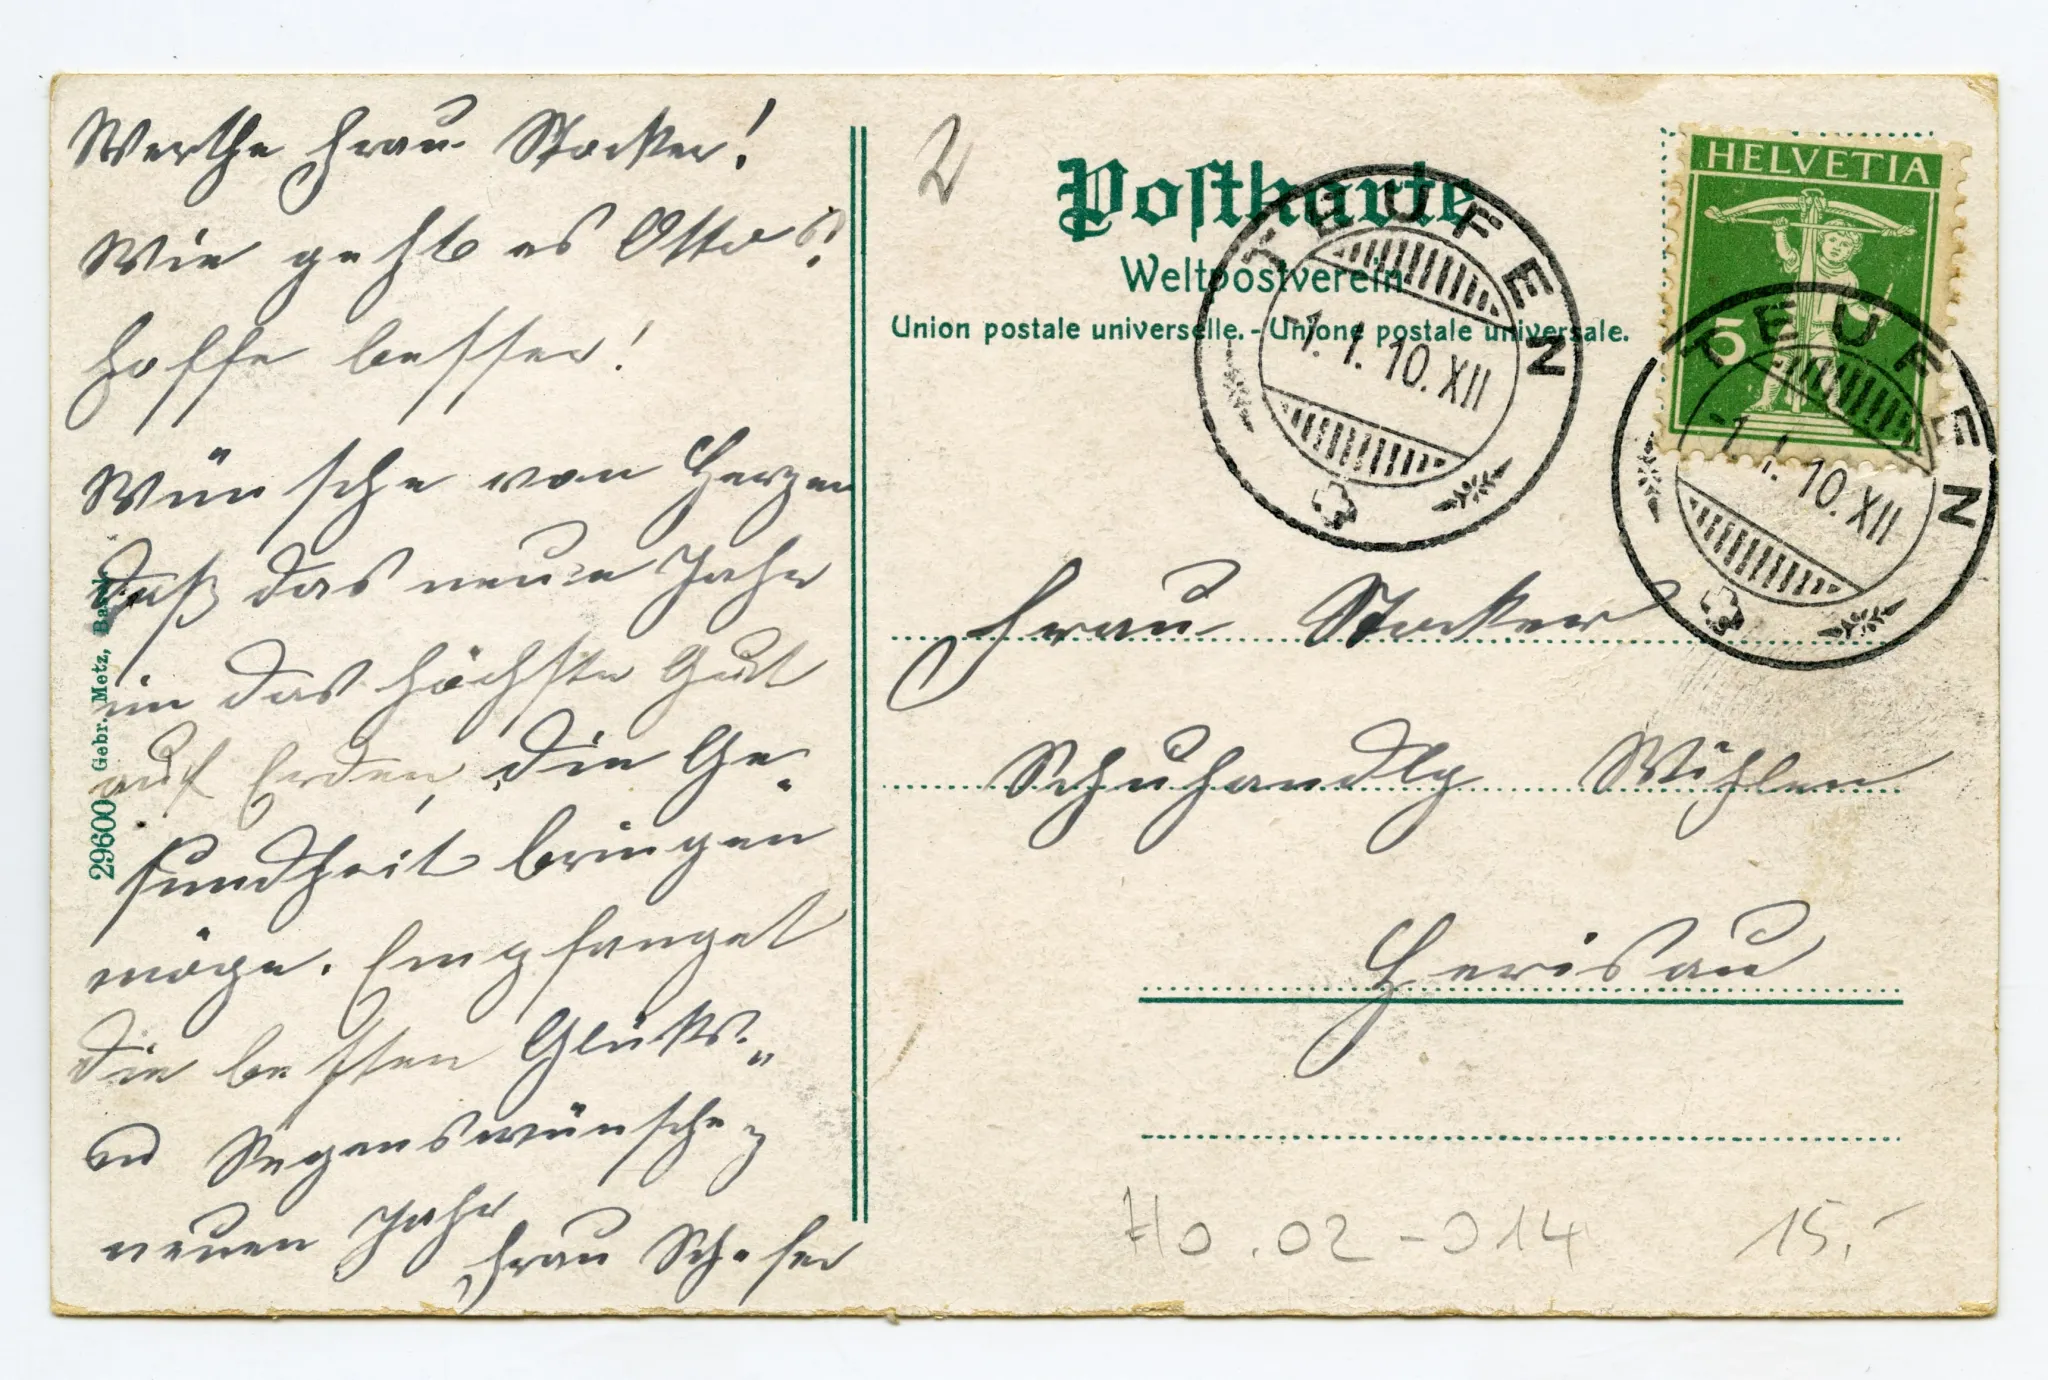 Werthe Frau Stocker!
Wie geht es Otto?
hoffe besser!
Wünsche von Herzen
daß das neue Jahr
im das höchste Gut
auf Erden, die Ge-
sundheit bringen
möge. Empfanget
die besten Glücks-
u Segenswünsche z
neuen Jahr
Frau Schefer
29600 Gebr. Metz, Basel
2
Postkarte
Weltpostverein
Union postale universelle. - Unione postale universale.
HELVETIA
5
TEUFEN
-1. I. 10. XII
TEUFEN
-1. I. 10. XII
Frau Stocker
Schuhandlg Mühlen
Herisau
Ho.02-014
15.-